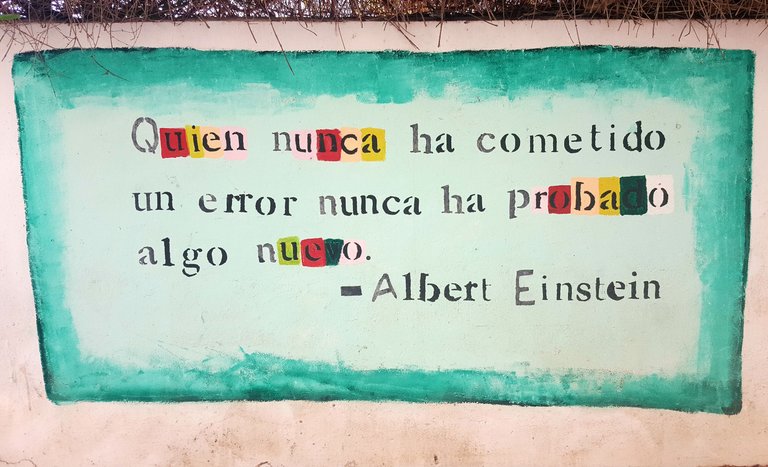 Quien nunca ha cometido
un error nunca ha probado
algo nuevo.
- Albert Einstein